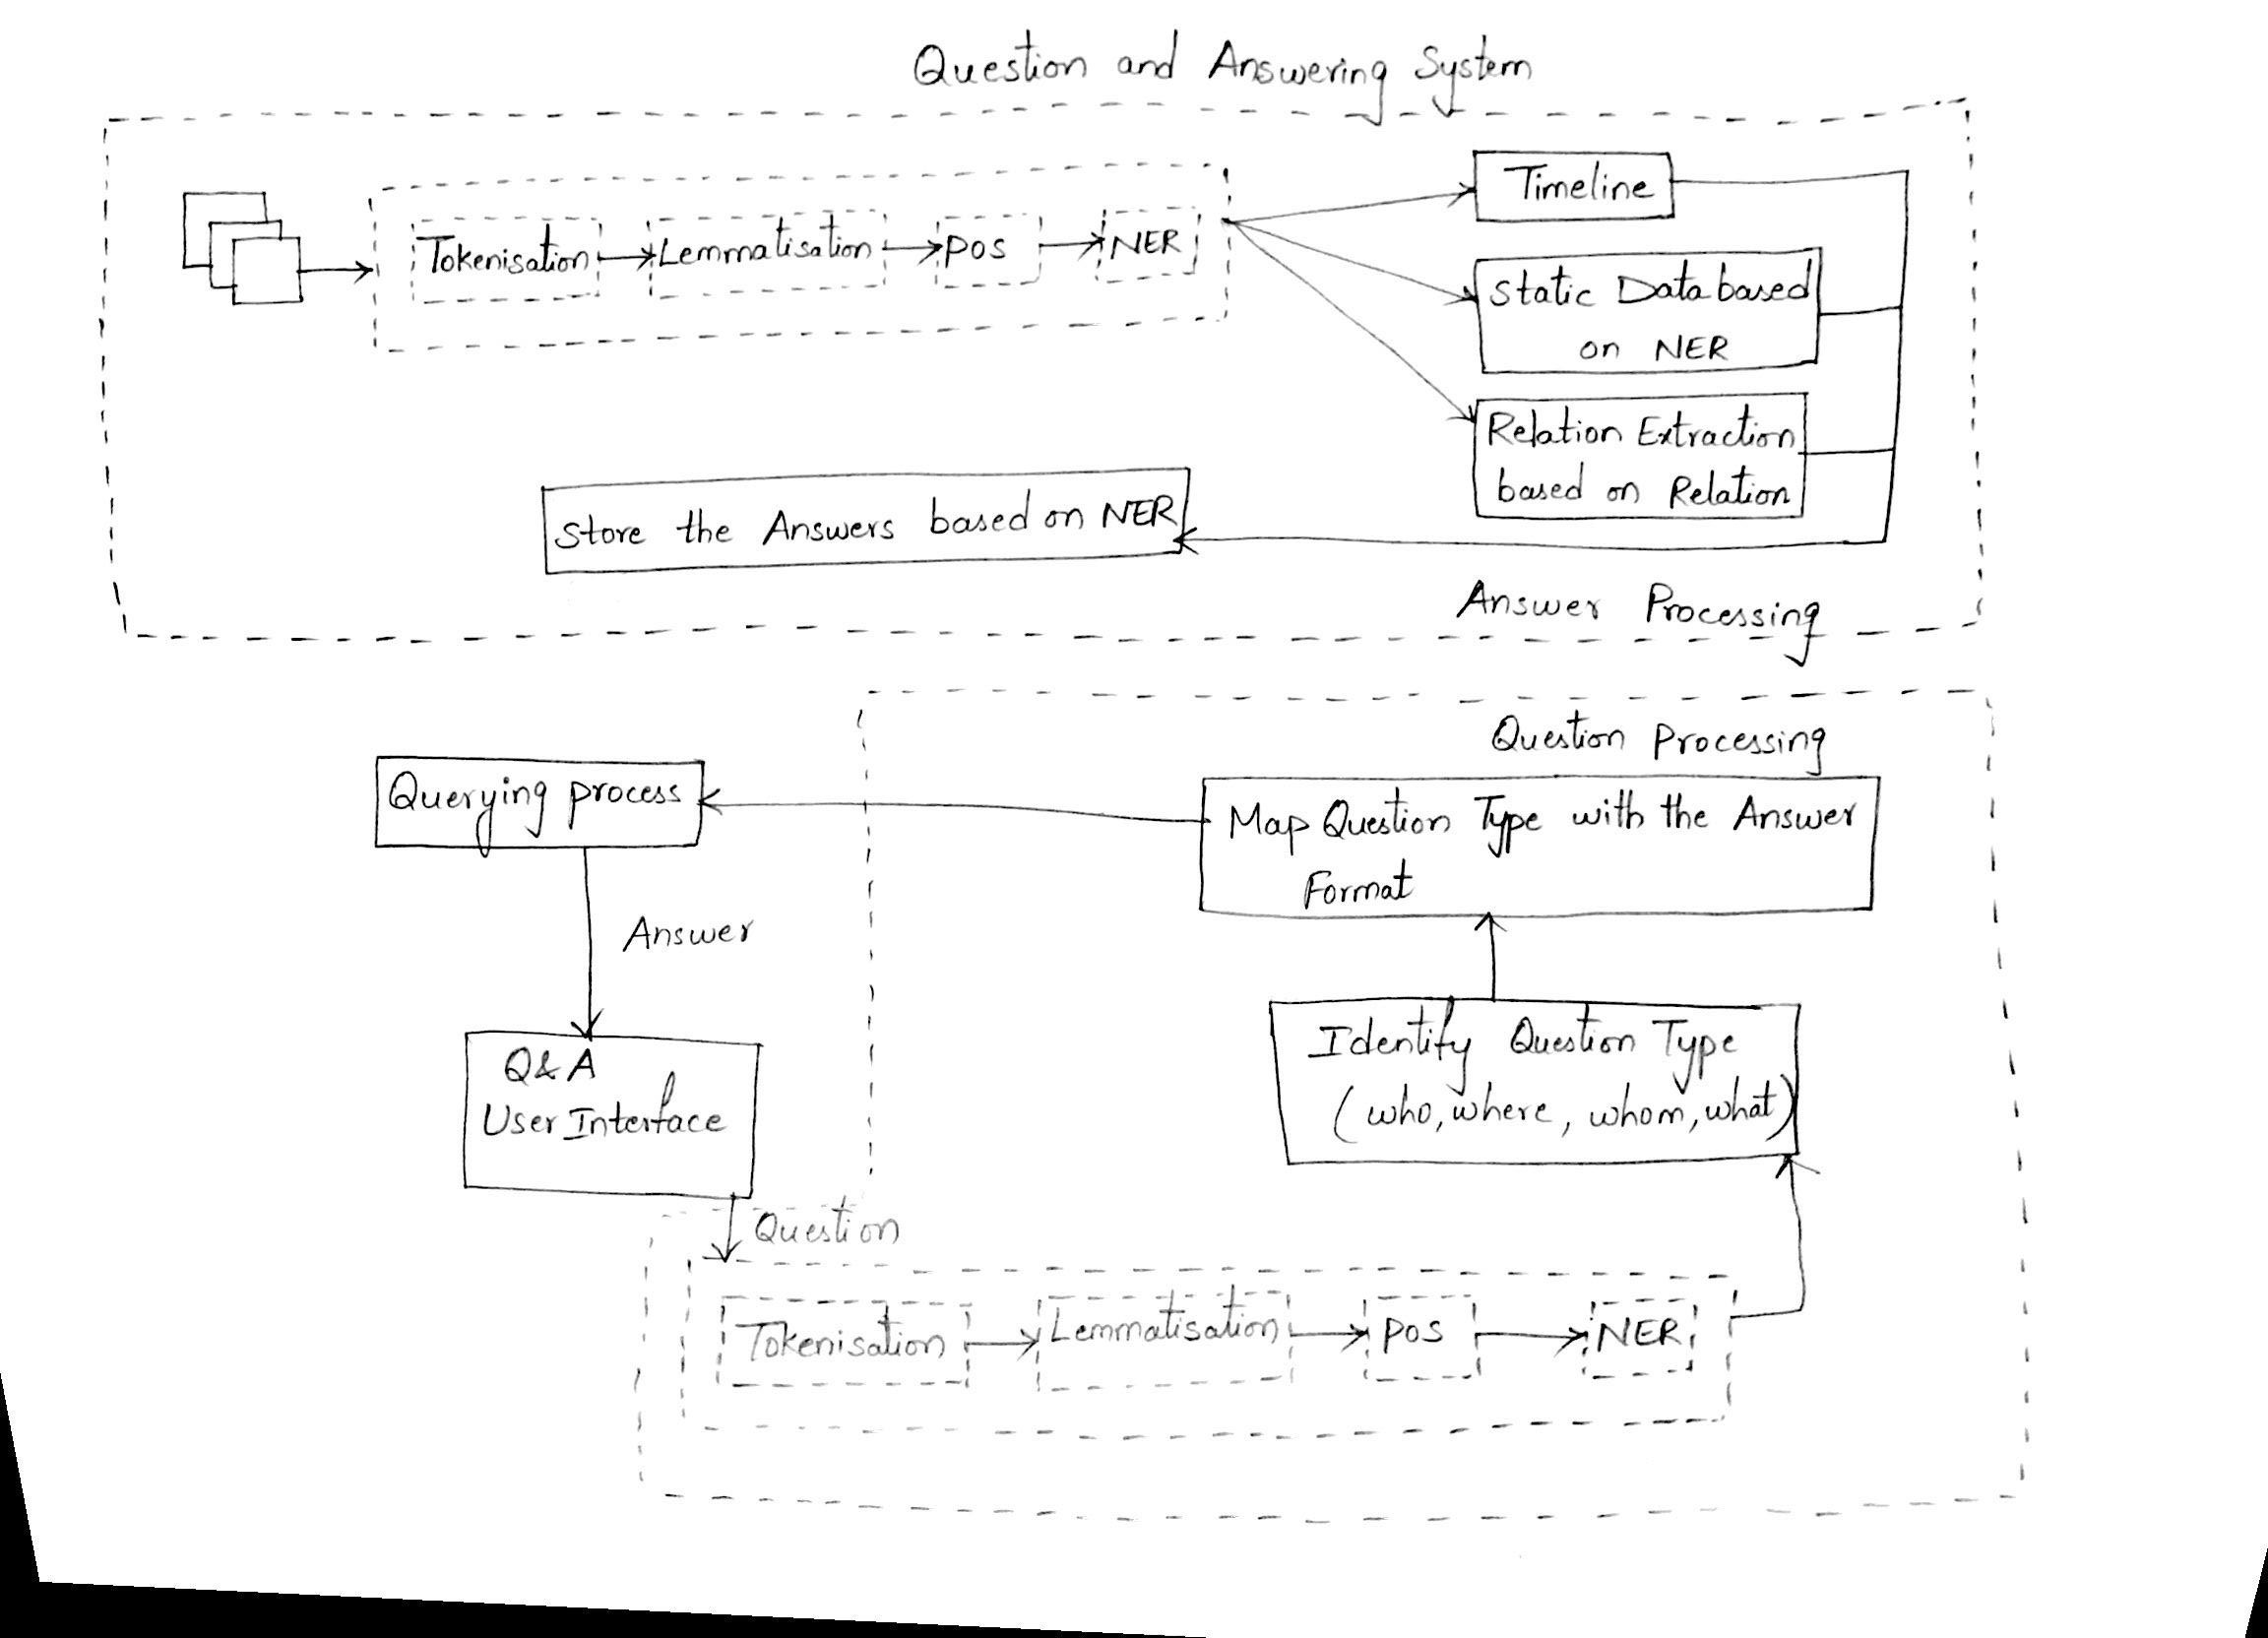 Question and Answering System
Timeline
Tokenisation
Lemmatisation
POS
NER
Static Data based
on NER
Relation Extraction
based on Relation
Store the Answers based on NER
Answer Processing
Question Processing
Querying process
Map Question Type with the Answer
Format
Answer
Identify Question Type
(who, where, whom, what)
Q&A
User Interface
Question
Tokenisation
Lemmatisation
POS
NER